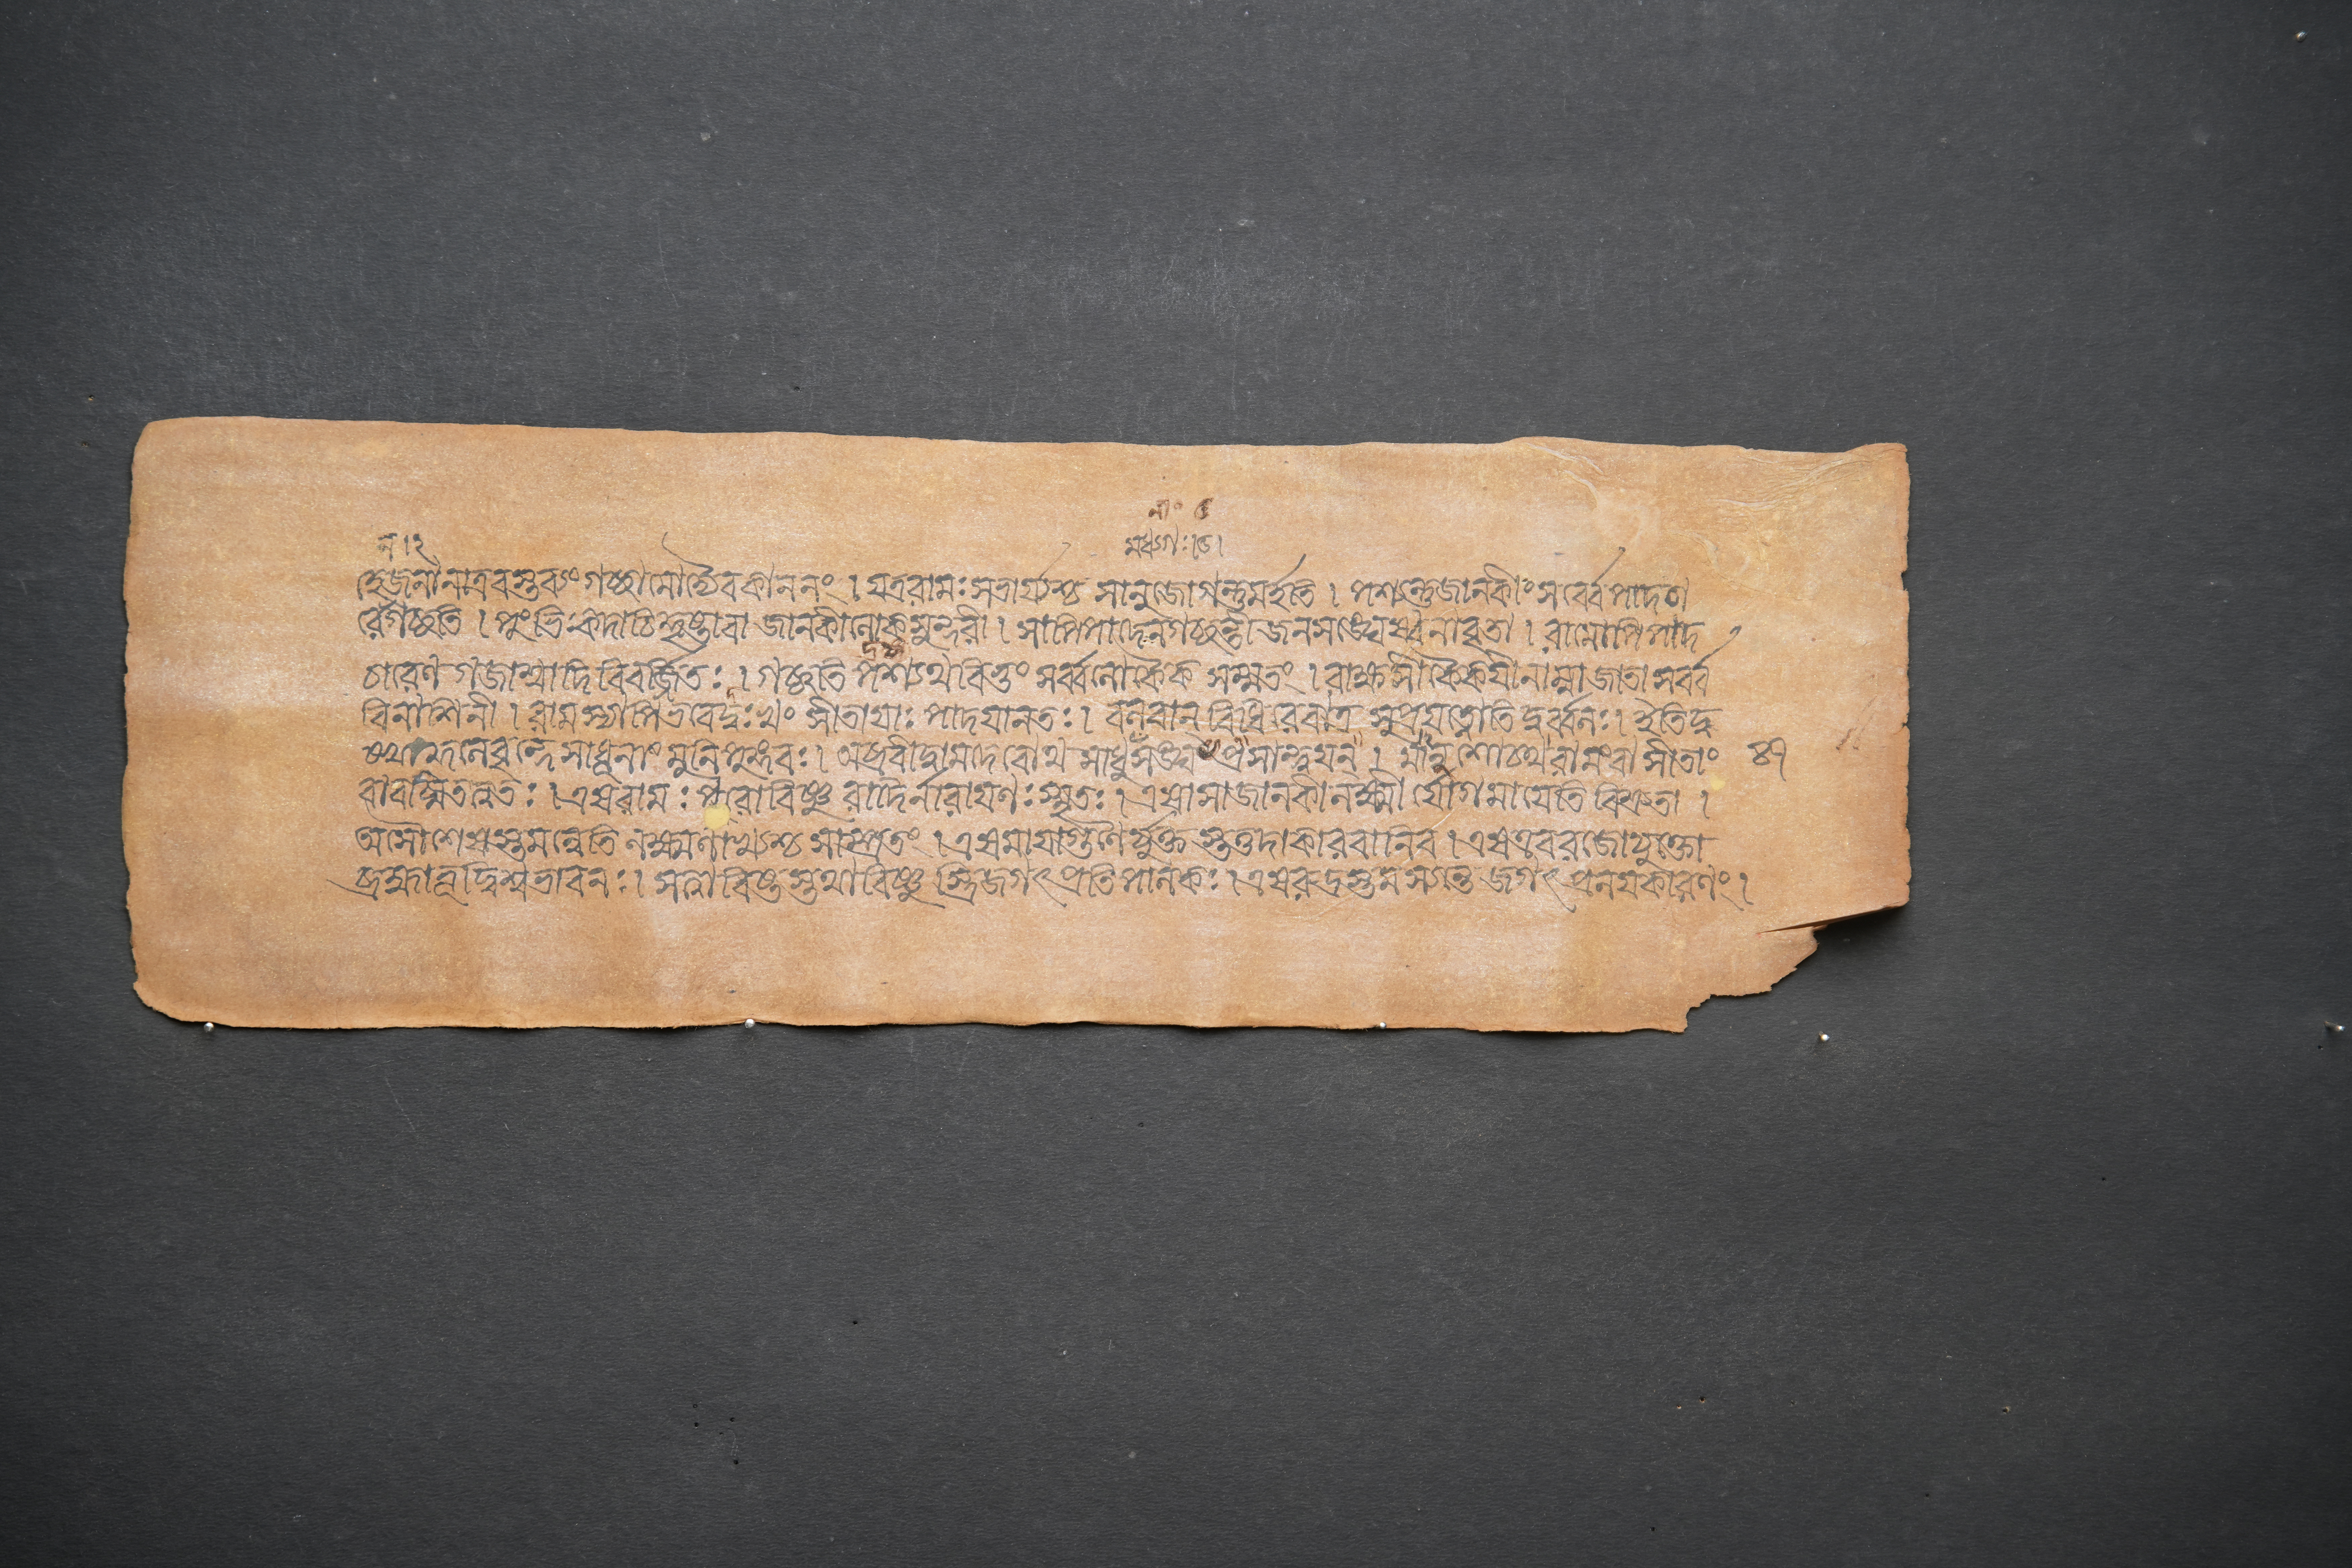 ন । ২
নাং ৫
মধ্যগঃ । ৬ ।
হেজনানাত্রবস্তব্যংগচ্ছামোদ্যৈবকাননং । যত্ররামঃসভার্য্যশ্চ সানুজোগন্তুমর্হতি । পশ্যন্তুজানকীংসর্ব্বেপাদচা
রের্গচ্ছতি । পুংভিঃকদাচিদ্দৃষ্টাবা জানকীলোকসুন্দরী । সাপিপাদেনগচ্ছন্তী জনসঙ্ঘেষ্বনাবৃতা । রামোপিপাদ
চারেণ গজাশ্বাদিবিবর্জ্জিতঃ । গচ্ছতি পশ্যথবিভুং সর্ব্বলোকৈক সম্মতং । রাক্ষসীকৈকেয়ীনাম্নাজাতা সর্ব্ব
বিনাশিনী । রামস্যাপিভবেদ্দুঃখং সীতায়াঃ পাদযানতঃ । বলবান্ বিধিরেবাত্র সুপ্রযত্নোতিদুর্ব্বলঃ । ইতিদু
নেবৃন্দেসাধূনাং মুনিপুঙ্গবঃ । অব্রবীদ্বামদেবোথ সাধুসঁঙ্ঘ প্রসান্ত্বয়ন্ । মানুশোচথরামংবা সীতাং ৪৭
বাবচ্মিতত্ত্বতঃ । এষরামঃ পরোবিষ্ণু রাদৈর্নারায়ণঃস্মৃতঃ । এষাসাজানকীলক্ষ্মী র্যোগমায়েতি বিশ্রুতা ।
অসৌশেষস্তমন্বেতি লক্ষ্মণাখ্যশ্চ সাম্প্রতং । এষমায়াগুণৈর্যুক্ত স্তত্তদাকারবানিব । এষএবরজোযুক্তো
ব্রহ্মাভূদ্বিশ্বভাবনঃ । সত্ত্বাবিষ্টস্তথাবিষ্ণু স্ত্রিজগৎপ্রতিপালকঃ । এষরুদ্রস্তমসোন্তে জগৎ প্রলয়কারণং ।